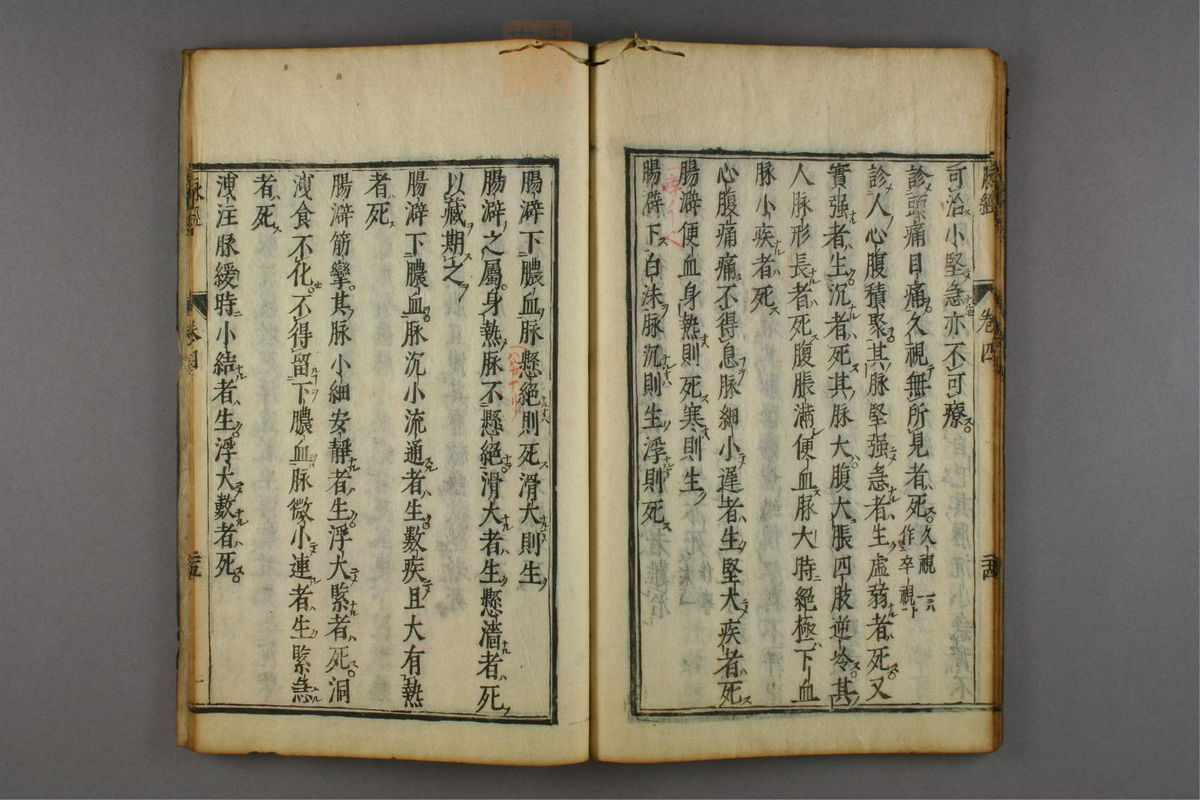 可治小堅急亦不可療
診頭痛目痛久視無所見者死久視一作卒視
診人心腹積聚其脉堅强急者生虛弱者死又
實强者生沉者死其脉大腹大脹四肢逆冷其
人脉形長者死腹脹滿便血脉大時絕極下血
脉小疾者死
心腹痛痛不得息脉細小遲者生堅大疾者死
腸澼便血身熱則死寒則生
腸澼下白沫脉沉則生浮則死
卷四
腸澼下膿血脉懸絕則死滑大則生
腸澼之屬身熱脉不懸絕滑大者生懸濇者死
以藏期之
腸澼下膿血脉沉小流通者生數疾且大有熱
者死
腸澼筋攣其脉小細安靜者生浮大緊者死洞
洩食不化不得留下膿血脉微小連者生緊急
者死
洩注脉緩時小結者生浮大數者死
脉經 卷四